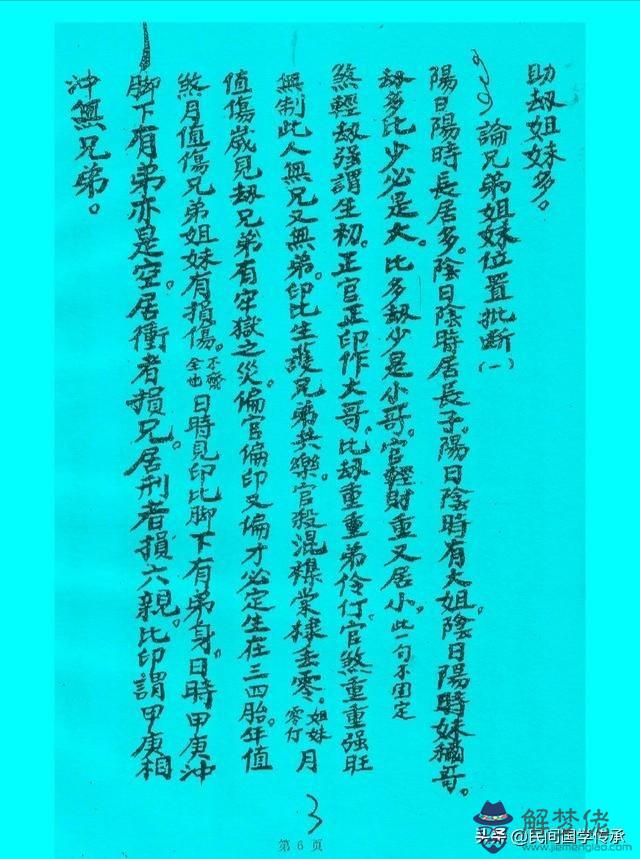 助刼姐妹多。
論兄弟姐妹位置批斷(一)
陽日陽時長居多。陰日陰時居長子。陽日陰時有大姐。陰日陽時妹稱哥。
刼多比少必是大。比多刼少是小哥。官輕財重又居小。此一句不固定
煞輕刼强謂生初。正官正印作大哥。比刼重重弟伶仃。官煞重重强旺
無制此人無兄又無弟。印比生護兄弟共樂。官殺混襍棠棣丟零。姐妹零仃月
值傷歲見刼兄弟有牢獄之災。偏官偏印又偏才必定生在三四胎。年值
煞月值傷兄弟姐妹有損傷。不齊全也日時見印比脚下有弟身。日時甲庚沖
脚下有弟亦是空。居衝者損兄。居刑者損六親。比印謂甲庚相
沖無兄弟。
第 6 页
解梦佬
www.jiemenglao.com
头条 @民间国学传承